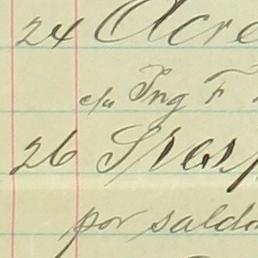 24 Acre
c/a Ing F
26 Trasp
por saldo